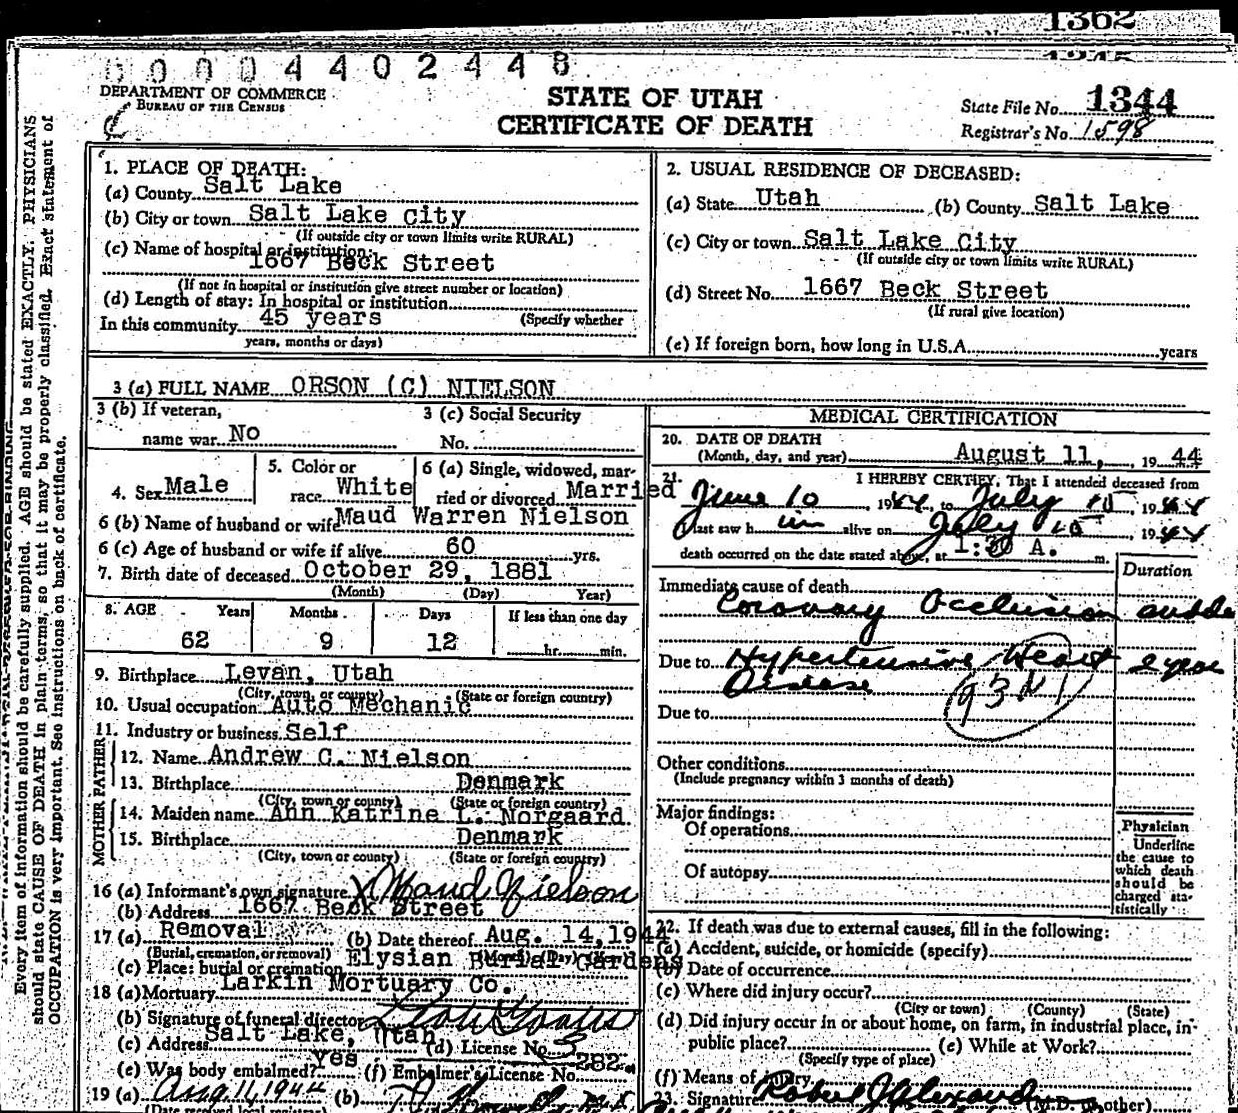 1362
1345
0 0 0 0 4 4 0 2 4 4 8
DEPARTMENT OF COMMERCE
BUREAU OF THE CENSUS
STATE OF UTAH
CERTIFICATE OF DEATH
State File No. 1344
Registrar's No. 1598
Every item of information should be carefully supplied. AGE should be stated EXACTLY. PHYSICIANS
should state CAUSE OF DEATH in plain terms, so that it may be properly classified. Exact statement of
OCCUPATION is very important. See instructions on back of certificate.
1. PLACE OF DEATH:
(a) County Salt Lake
(b) City or town Salt Lake City
(If outside city or town limits write RURAL)
(c) Name of hospital or institution:
1667 Beck Street
(If not in hospital or institution give street number or location)
(d) Length of stay: In hospital or institution
In this community 45 years (Specify whether
years, months or days)
2. USUAL RESIDENCE OF DECEASED:
(a) State Utah (b) County Salt Lake
(c) City or town Salt Lake City
(If outside city or town limits write RURAL)
(d) Street No. 1667 Beck Street
(If rural give location)
(e) If foreign born, how long in U.S.A. years
3 (a) FULL NAME ORSON (C) NIELSON
3 (b) If veteran, 3 (c) Social Security
name war No No.
4. Sex Male
5. Color or
race White
6 (a) Single, widowed, mar-
ried or divorced Married
6 (b) Name of husband or wife Maud Warren Nielson
6 (c) Age of husband or wife if alive 60 yrs.
7. Birth date of deceased October 29, 1881
(Month) (Day) Year)
8. AGE Years Months Days If less than one day
62 9 12 hr. min.
9. Birthplace Levan, Utah
(City, town, or county) (State or foreign country)
10. Usual occupation Auto Mechanic
11. Industry or business Self
FATHER
12. Name Andrew C. Nielson
13. Birthplace Denmark
(City, town or county) (State or foreign country)
MOTHER
14. Maiden name Ann Katrine L. Norgaard
15. Birthplace Denmark
(City, town or county) (State or foreign country)
16 (a) Informant's own signature X Maud Nielson
(b) Address 1667 Beck Street
17 (a) Removal (b) Date thereof Aug. 14, 1944
(Burial, cremation, or removal) (Month) (Day)
(c) Place: burial or cremation Elysian Burial Gardens
18 (a) Mortuary Larkin Mortuary Co.
(b) Signature of funeral director
(c) Address Salt Lake, Utah (d) License No. 3
(e) Was body embalmed? yes (f) Embalmer's License No. 282
19 (a) Aug. 11, 1944 (b)
(Date received local registrar)
MEDICAL CERTIFICATION
20. DATE OF DEATH
(Month, day, and year) August 11, 1944
21. I HEREBY CERTIFY, That I attended deceased from
June 10, 1944, to July 15, 1944
I last saw him alive on July 15, 1944
death occurred on the date stated above, at 1:30 A. m.
Duration
Immediate cause of death
Coronary Occlusion sudde
Due to Hypertensive Heart 2 year
Disease
Due to
Other conditions
(Include pregnancy within 3 months of death)
Major findings:
Of operations
Of autopsy
Physician
Underline
the cause to
which death
should be
charged sta-
tistically
22. If death was due to external causes, fill in the following:
(a) Accident, suicide, or homicide (specify)
(b) Date of occurrence
(c) Where did injury occur?
(City or town) (County) (State)
(d) Did injury occur in or about home, on farm, in industrial place, in
public place? (e) While at Work?
(Specify type of place)
(f) Means of injury
23. Signature (M.D. or other)